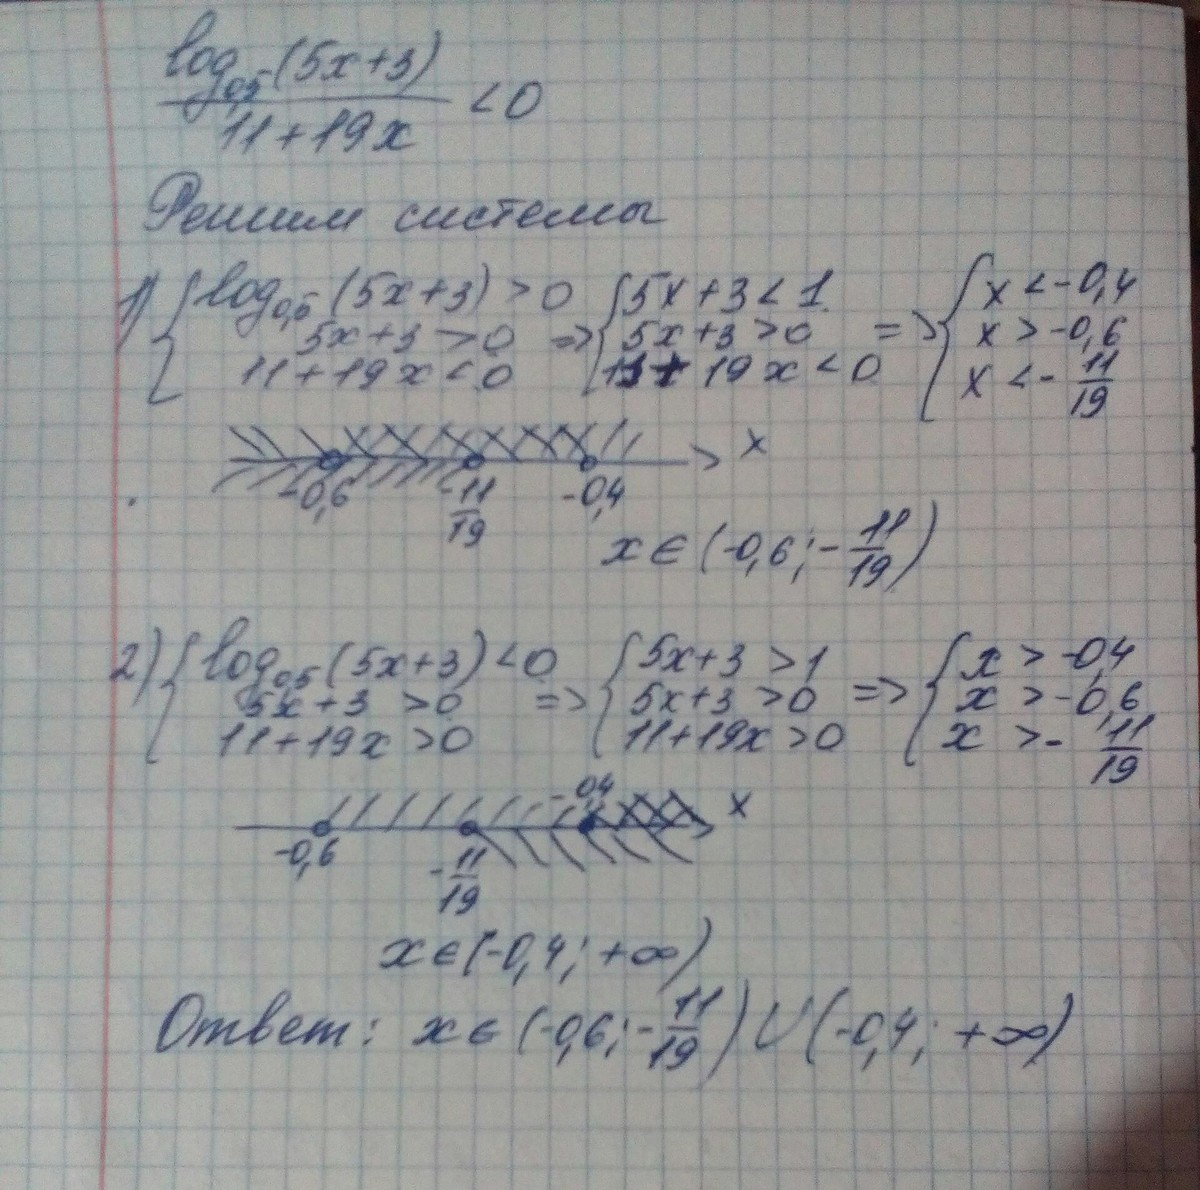 log₀,₅(5x+3)
11+19x <0
Решим системы
1) { log₀,₅(5x+3)>0 { 5x+3<1 { x<-0,4
5x+3>0 => 5x+3>0 => x>-0,6
11+19x<0 11+19x<0 x<-11/19
-0,6 -11/19 -0,4 x
x∈(-0,6;-11/19)
2) { log₀,₅(5x+3)<0 { 5x+3>1 { x>-0,4
5x+3>0 => 5x+3>0 => x>-0,6
11+19x>0 11+19x>0 x>-11/19
-0,6 -11/19 -0,4 x
x∈(-0,4;+∞)
Ответ: x∈(-0,6;-11/19)∪(-0,4;+∞)